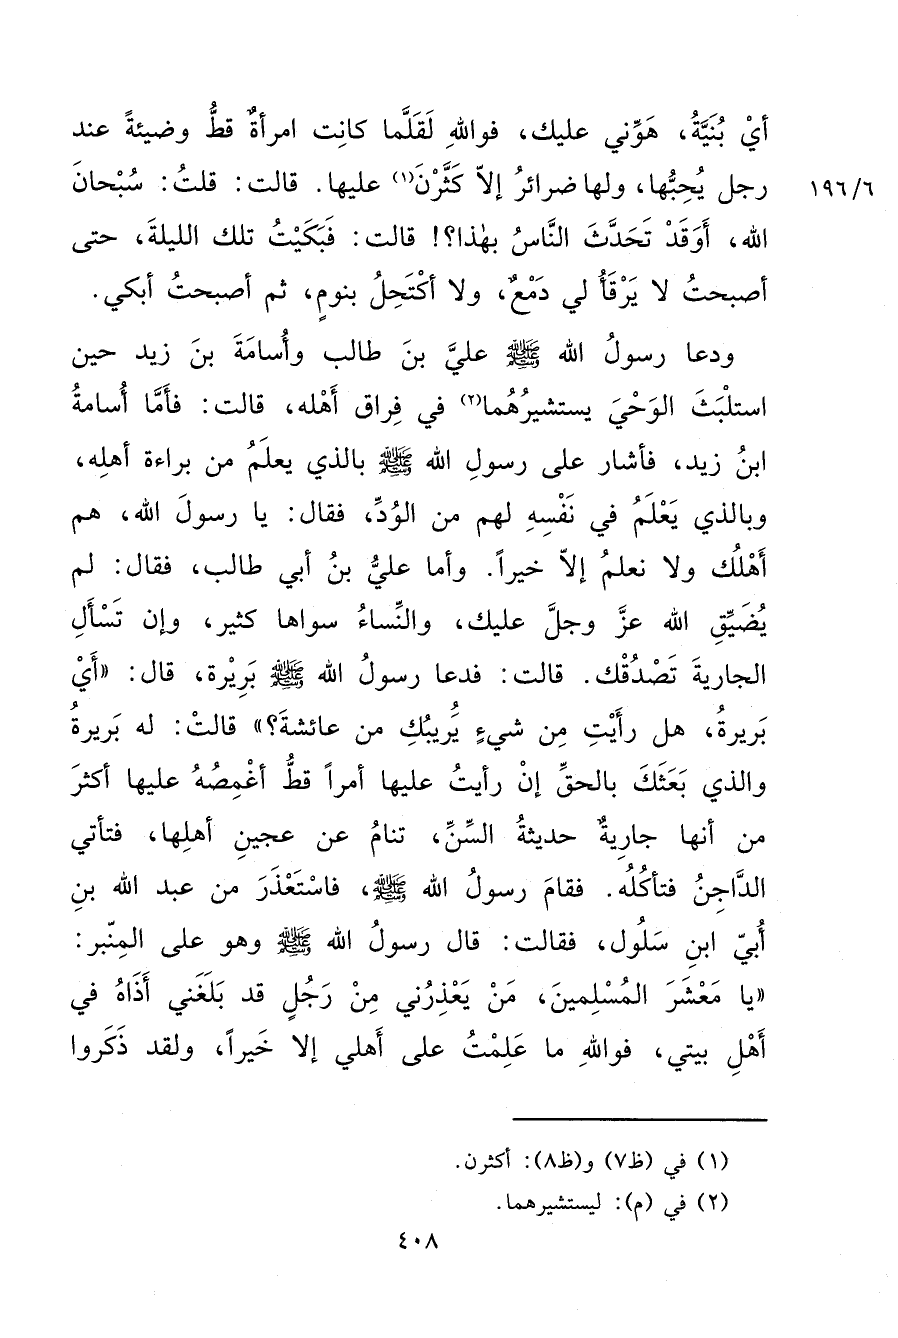 أيْ بُنَيَّةُ، هَوِّني عليك، فواللهِ لَقَلَّما كانت امرأةٌ قطُّ وضيئةً عند
رجل يُحِبُّها، ولها ضرائرُ إلاّ كَثَّرْنَ(١) عليها. قالت: قلتُ: سُبْحانَ
١٩٦/٦
الله، أَوَقَدْ تَحَدَّثَ النَّاسُ بهٰذا؟! قالت: فَبَكَيْتُ تلك الليلةَ، حتى
أصبحتُ لا يَرْقَأُ لي دَمْعٌ، ولا أكْتَحِلُ بنومٍ، ثم أصبحتُ أبكي.
ودعا رسولُ الله ﷺ عليَّ بنَ طالب وأُسامَةَ بنَ زيد حين
استلْبَثَ الوَحْيَ يستشيرُهُما(٢) في فِراق أَهْله، قالت: فأَمَّا أُسامةُ
ابنُ زيد، فأشار على رسولِ الله ﷺ بالذي يعلَمُ من براءة أهلِه،
وبالذي يَعْلَمُ في نَفْسِهِ لهم من الوُدِّ، فقال: يا رسولَ الله، هم
أَهْلُك ولا نعلمُ إلاّ خيراً. وأما عليُّ بنُ أبي طالب، فقال: لم
يُضَيِّقِ الله عزَّ وجلَّ عليك، والنِّساءُ سواها كثير، وإن تَسْأَلِ
الجاريةَ تَصْدُقْك. قالت: فدعا رسولُ الله ﷺ بَرِيْرة، قال: «أَيْ
بَريرةُ، هل رأَيْتِ مِن شيءٍ يُريبُكِ من عائشةَ؟» قالتْ: له بَريرةُ
والذي بَعَثَكَ بالحقِّ إنْ رأيتُ عليها أمراً قطُّ أغْمِصُهُ عليها أكثرَ
من أنها جاريةٌ حديثةُ السِّنِّ، تنامُ عن عجينِ أهلِها، فتأتي
الدَّاجِنُ فتأكُلُه. فقامَ رسولُ الله ﷺ، فاسْتَعْذَرَ من عبد الله بنِ
أُبيّ ابنِ سَلُول، فقالت: قال رسولُ الله ﷺ وهو على المِنْبر:
«يا مَعْشَرَ المُسْلِمينَ، مَنْ يَعْذِرُني مِنْ رَجُلٍ قد بَلَغَني أَذَاهُ في
أَهْلِ بيتي، فواللهِ ما عَلِمْتُ على أَهلي إلا خَيراً، ولقد ذَكَروا
(١) في (ظ٧) و(ظ٨): أكثرن.
(٢) في (م): ليستشيرهما.
٤٠٨